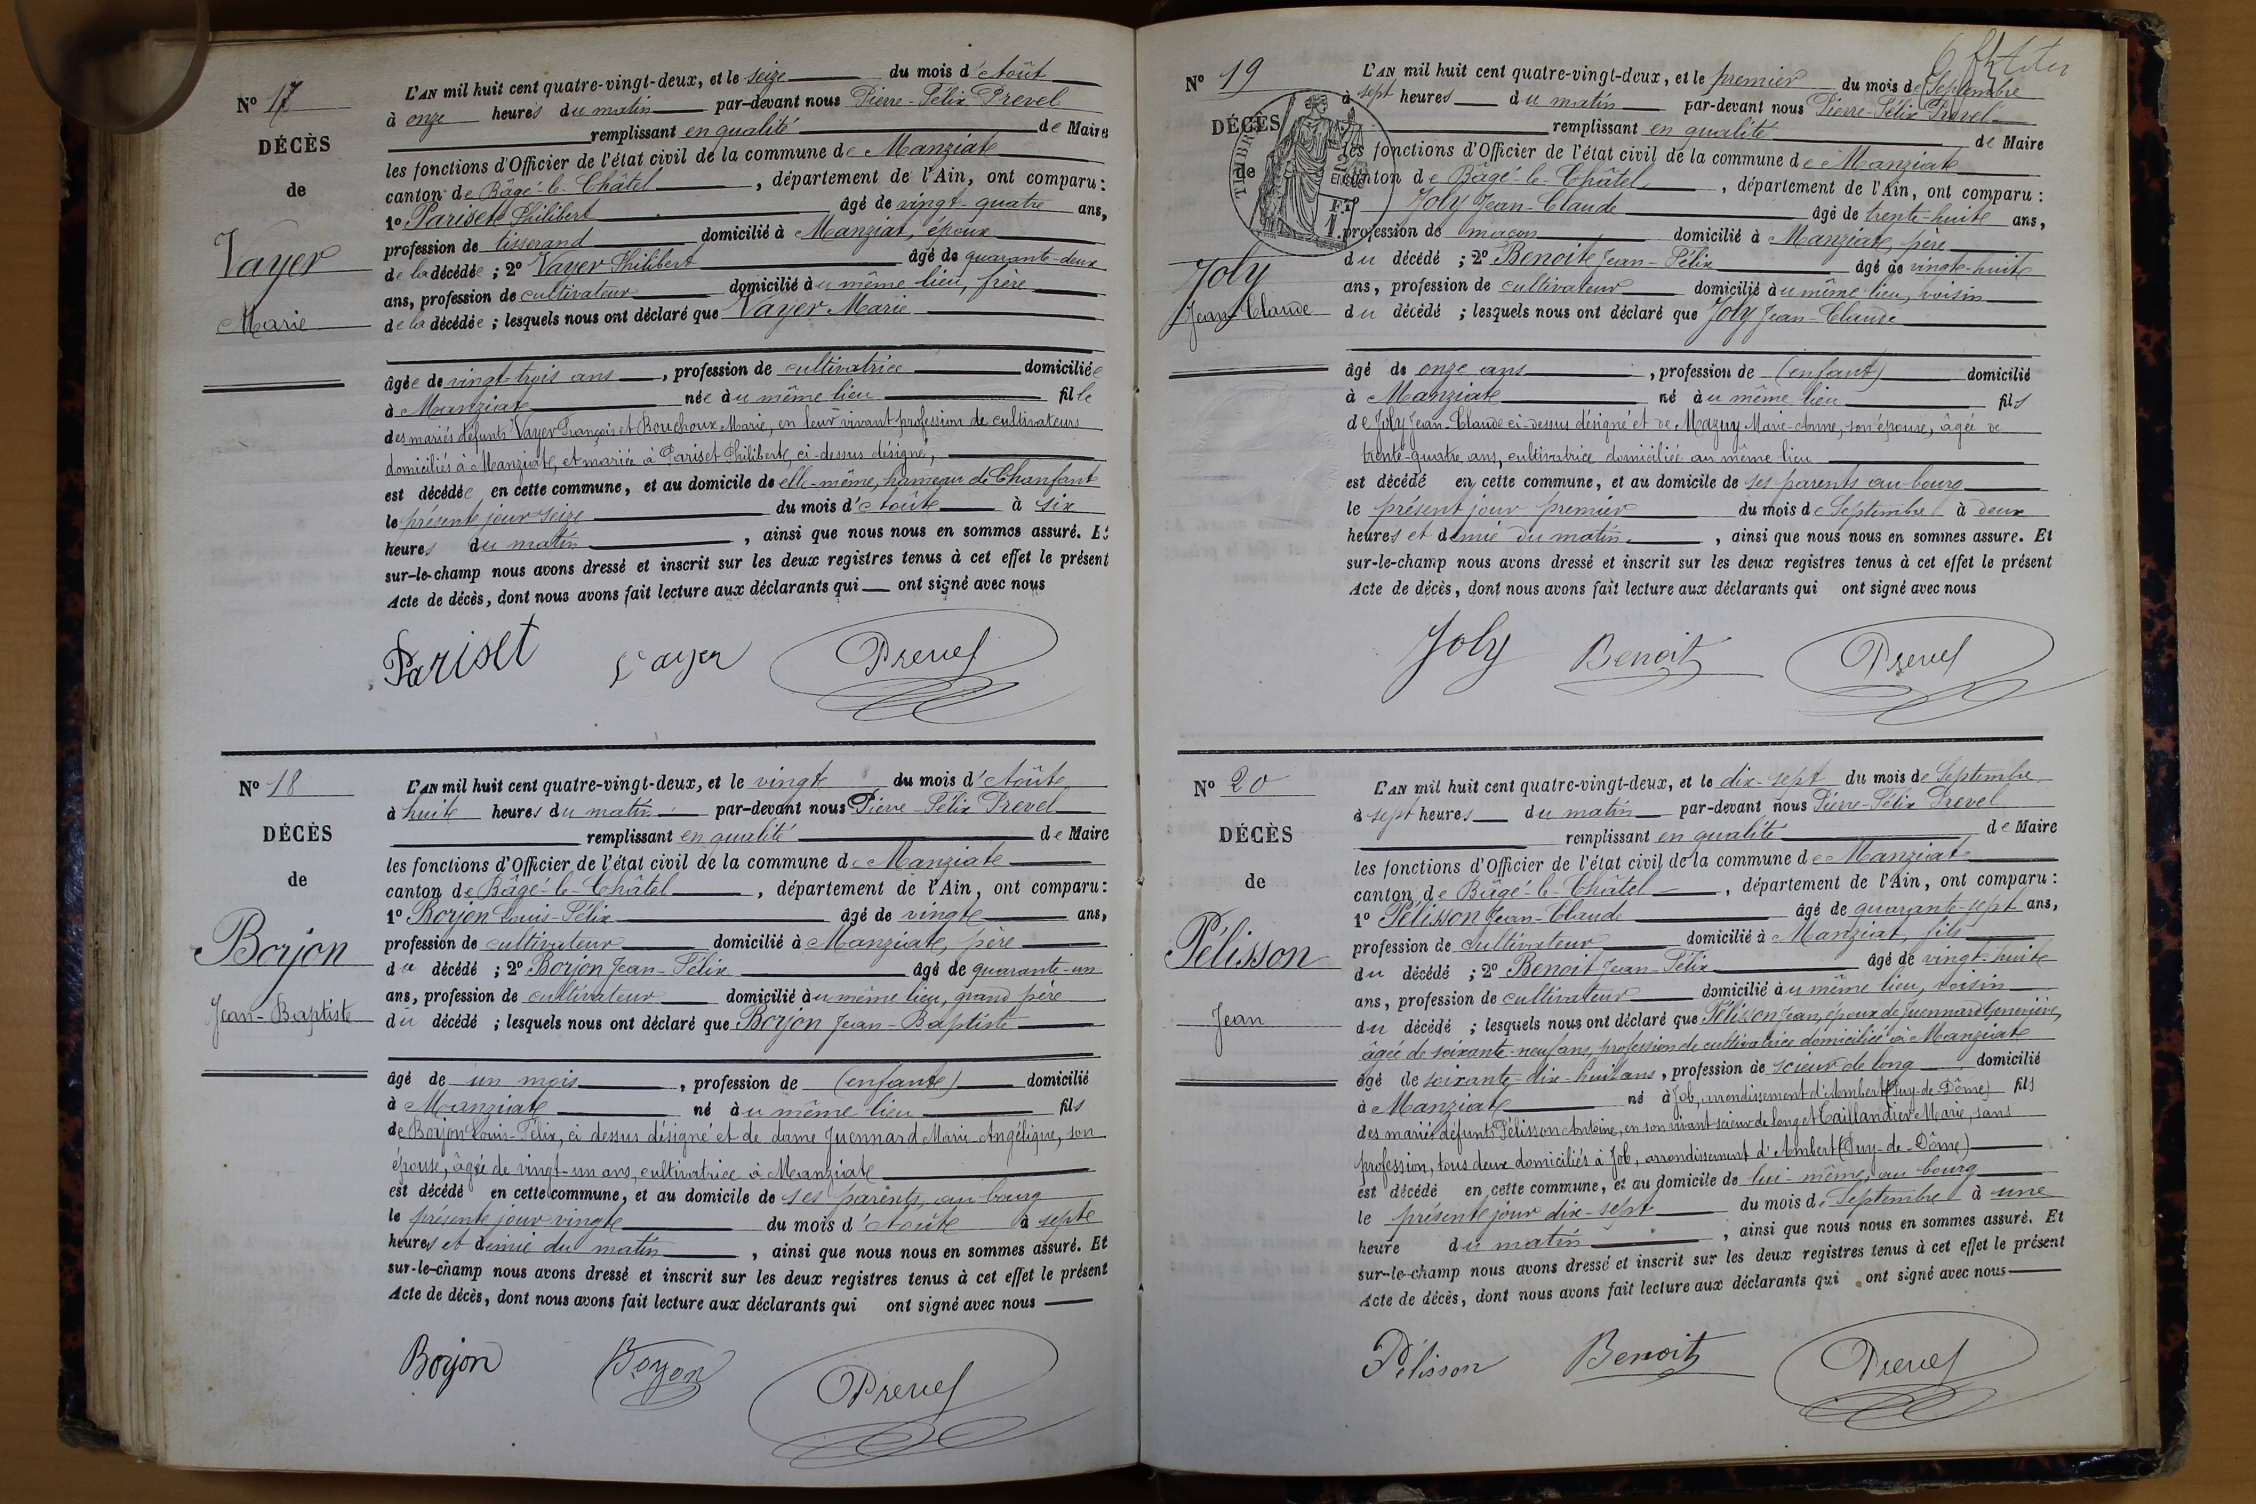 Nº 17
DÉCÈS
de
Vayer
Marie
L'AN mil huit cent quatre-vingt-deux, et le seize du mois d'Août
à onze heures du matin par-devant nous Pierre-Félix Prevel
remplissant en qualité de Maire
les fonctions d'Officier de l'état civil de la commune de Manziat
canton de Bâgé-le-Châtel, département de l'Ain, ont comparu:
1º Pariset Philibert âgé de vingt-quatre ans,
profession de tisserand domicilié à Manziat, époux
de la décédée ; 2º Vayer Philibert âgé de quarante-deux
ans, profession de cultivateur domicilié au même lieu, frère
de la décédée ; lesquels nous ont déclaré que Vayer Marie
âgée de vingt-trois ans, profession de cultivatrice domiciliée
à Manziat née au même lieu fille
des mariés défunts Vayer François et Bouchoux Marie, en leur vivant profession de cultivateurs
domiciliés à Manziat, et mariée à Pariset Philibert, ci-dessus désigné,
est décédée en cette commune, et au domicile de elle-même, hameau de Chanfant
le présent jour seize du mois d'Août à six
heures du matin, ainsi que nous nous en sommes assuré. Et
sur-le-champ nous avons dressé et inscrit sur les deux registres tenus à cet effet le présent
Acte de décès, dont nous avons fait lecture aux déclarants qui ont signé avec nous
Pariset Vayer Prevel
Nº 18
DÉCÈS
de
Borjon
Jean-Baptiste
L'AN mil huit cent quatre-vingt-deux, et le vingt du mois d'Août
à huit heures du matin par-devant nous Pierre-Félix Prevel
remplissant en qualité de Maire
les fonctions d'Officier de l'état civil de la commune de Manziat
canton de Bâgé-le-Châtel, département de l'Ain, ont comparu:
1º Borjon Louis-Félix âgé de vingt ans,
profession de cultivateur domicilié à Manziat, père
du décédé ; 2º Borjon Jean-Félix âgé de quarante-un
ans, profession de cultivateur domicilié au même lieu, grand père
du décédé ; lesquels nous ont déclaré que Borjon Jean-Baptiste
âgé de un mois, profession de (enfant) domicilié
à Manziat né au même lieu fils
de Borjon Louis-Félix, ci dessus désigné et de dame Juennard Marie-Angélique, son
épouse, âgée de vingt-un ans, cultivatrice à Manziat
est décédé en cette commune, et au domicile de ses parents, au bourg
le présent jour vingt du mois d'Août à sept
heures et demie du matin, ainsi que nous nous en sommes assuré. Et
sur-le-champ nous avons dressé et inscrit sur les deux registres tenus à cet effet le présent
Acte de décès, dont nous avons fait lecture aux déclarants qui ont signé avec nous
Borjon Borjon Prevel
Nº 19
DÉCÈS
de
Joly
Jean-Claude
L'AN mil huit cent quatre-vingt-deux, et le premier du mois de Septembre
à sept heures du matin par-devant nous Pierre-Félix Prevel
remplissant en qualité de Maire
les fonctions d'Officier de l'état civil de la commune de Manziat
canton de Bâgé-le-Châtel, département de l'Ain, ont comparu :
Joly Jean-Claude âgé de trente-huit ans,
profession de maçon domicilié à Manziat, père
du décédé ; 2º Benoit Jean-Félix âgé de vingt-huit
ans, profession de cultivateur domicilié au même lieu, voisin
du décédé ; lesquels nous ont déclaré que Joly Jean-Claude
âgé de onze ans, profession de (enfant) domicilié
à Manziat né au même lieu fils
de Joly Jean-Claude ci-dessus désigné et de Mazuy Marie-Anne, son épouse, âgée de
trente-quatre ans, cultivatrice domiciliée au même lieu
est décédé en cette commune, et au domicile de ses parents au bourg
le présent jour premier du mois de Septembre à deux
heures et demie du matin, ainsi que nous nous en sommes assuré. Et
sur-le-champ nous avons dressé et inscrit sur les deux registres tenus à cet effet le présent
Acte de décès, dont nous avons fait lecture aux déclarants qui ont signé avec nous
Joly Benoit Prevel
Nº 20
DÉCÈS
de
Pélisson
Jean
L'AN mil huit cent quatre-vingt-deux, et le dix-sept du mois de Septembre
à sept heures du matin par-devant nous Pierre-Félix Prevel
remplissant en qualité de Maire
les fonctions d'Officier de l'état civil de la commune de Manziat
canton de Bâgé-le-Châtel, département de l'Ain, ont comparu :
1º Pélisson Jean-Claude âgé de quarante-sept ans,
profession de cultivateur domicilié à Manziat, fils
du décédé ; 2º Benoit Jean-Félix âgé de vingt-huit
ans, profession de cultivateur domicilié au même lieu, voisin
du décédé ; lesquels nous ont déclaré que Pélisson Jean, époux de Juennard Geneviève,
âgée de soixante-neuf ans, profession de cultivatrice domiciliée à Manziat
âgé de soixante-dix-huit ans, profession de scieur de long domicilié
à Manziat né à Job, arrondissement d'Ambert (Puy-de-Dôme) fils
des mariés défunts Pélisson Antoine, en son vivant scieur de long et Taillandier Marie, sans
profession, tous deux domiciliés à Job, arrondissement d'Ambert (Puy-de-Dôme)
est décédé en cette commune, et au domicile de lui-même, au bourg
le présent jour dix-sept du mois de Septembre à une
heure du matin, ainsi que nous nous en sommes assuré. Et
sur-le-champ nous avons dressé et inscrit sur les deux registres tenus à cet effet le présent
Acte de décès, dont nous avons fait lecture aux déclarants qui ont signé avec nous
Pélisson Benoit Prevel